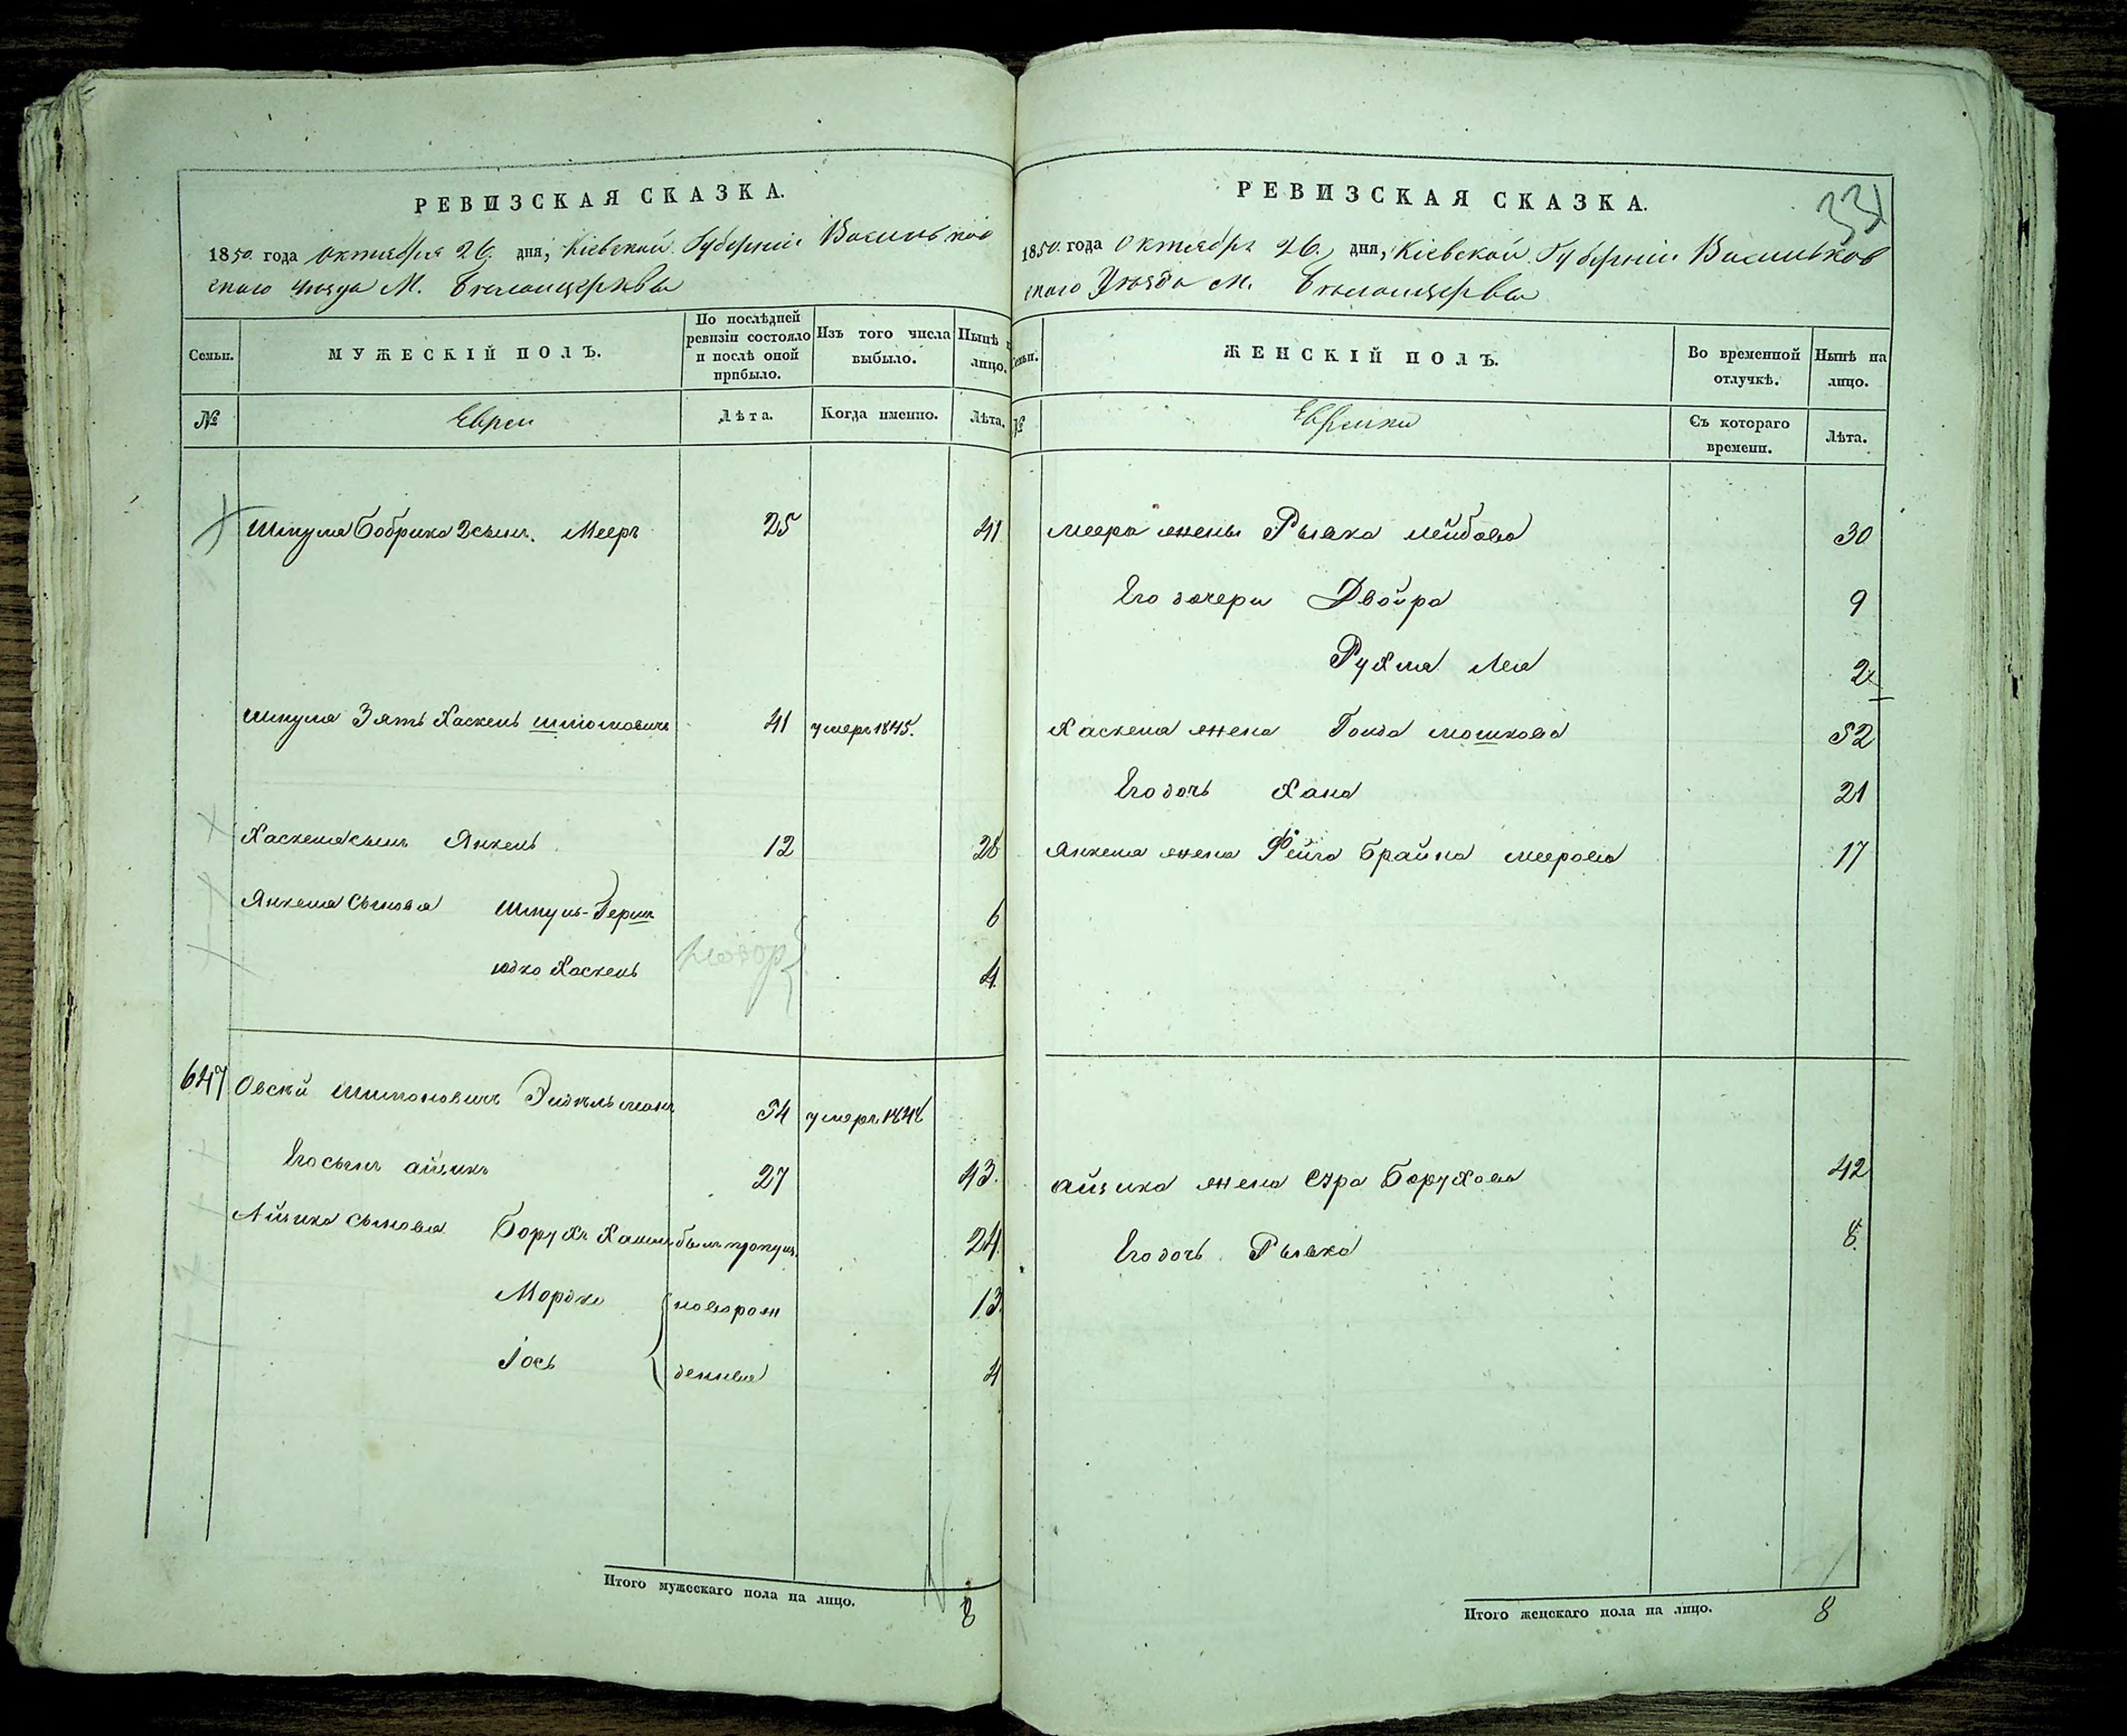 РЕВИЗСКАЯ СКАЗКА.
1850 года Октября 26 дня, Кіевской Губерніи Васильков
скаго уѣзда М. Бѣлоцерквы
Семьи.
МУЖЕСКІЙ ПОЛЪ.
По послѣдней ревизіи состояло и послѣ оной прибыло.
Изъ того числа выбыло.
Нынѣ н лицо.
№
Евреи
Лѣта.
Когда именно.
Лѣта.
Шмуля Бобрика 2 сынъ. Мееръ 25 41
Шмуля Зять Хаскель 41 умеръ 1845.
Хаскеля сынъ Янкель 12 28
Янкеля сыновья Шмуль-Герш 6
новор
Юдко Хаскель 4
647 Овсѣй Шимоновичъ 54 умеръ 1848
Его сынъ Айзикъ 27 43.
Айзика сыновья Борухъ Хаим былъ пропущ. 24.
Мордко новорож 13.
Іось денные 4
Итого мужескаго пола на лицо. 8
РЕВИЗСКАЯ СКАЗКА.
331
1850 года Октября 26 дня, Кіевской Губерніи Васильков
скаго Уѣзда М. Бѣлоцерквы
Семьи.
ЖЕНСКІЙ ПОЛЪ.
Во временной отлучкѣ.
Нынѣ на лицо.
№
Еврейки
Съ котораго времени.
Лѣта.
Меера жена Рывка Лейбова 30
Его дочери Двойра 9
Рухля Лея 2
Хаскеля жена Голда Мошкова 52
Его дочь Хана 21
Янкеля жена Фейга Брайна Меерова 17
Айзика жена Сура Борухова 42
Его дочь Рывка 8.
Итого женскаго пола на лицо. 8